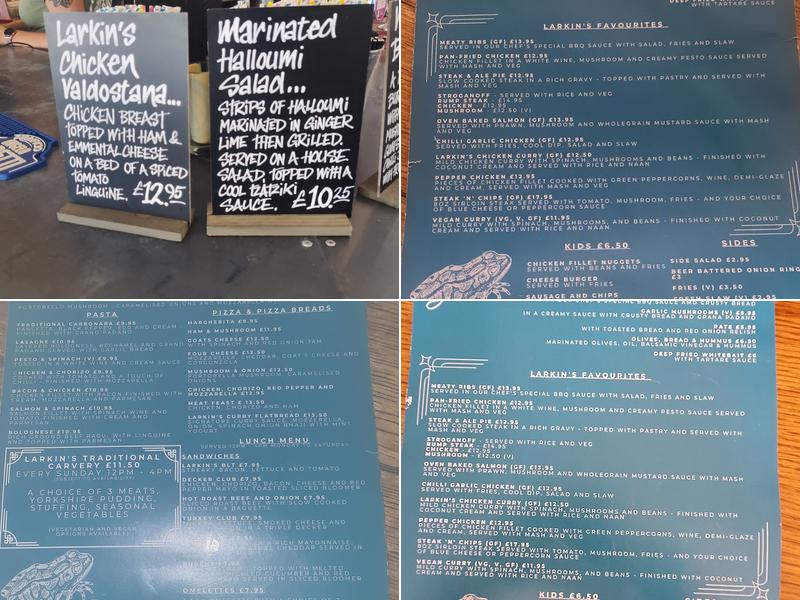 Larkin's
Chicken
Valdostana...
CHICKEN BREAST
TOPPED WITH HAM &
EMMENTAL CHEESE
ON A BED OF A SPICED
TOMATO
LINGUINE. £12.95
Marinated
Halloumi
Salad...
STRIPS OF HALLOUMI
MARINATED IN GINGER
LIME THEN GRILLED.
SERVED ON A HOUSE
SALAD, TOPPED WITH A
COOL TZATZIKI
SAUCE. £10.25
WITH TARTARE SAUCE
LARKIN'S FAVOURITES
MEATY RIBS (GF) £13.95
SERVED IN OUR CHEF'S SPECIAL BBQ SAUCE WITH SALAD, FRIES AND SLAW
PAN-FRIED CHICKEN £12.95
CHICKEN FILLET IN A WHITE WINE, MUSHROOM AND CREAMY PESTO SAUCE SERVED
WITH MASH AND VEG
STEAK & ALE PIE £12.95
SLOW COOKED STEAK IN A RICH GRAVY - TOPPED WITH PASTRY AND SERVED WITH
MASH AND VEG
STROGANOFF - SERVED WITH RICE AND VEG
RUMP STEAK - £14.95
CHICKEN - £12.95
MUSHROOM - £12.50 (V)
OVEN BAKED SALMON (GF) £13.95
SERVED WITH PRAWN, MUSHROOM AND WHOLEGRAIN MUSTARD SAUCE WITH MASH
AND VEG
CHILLI GARLIC CHICKEN (GF) £12.95
SERVED WITH FRIES, COOL DIP, SALAD AND SLAW
LARKIN'S CHICKEN CURRY (GF) £12.50
MILD CHICKEN CURRY WITH SPINACH, MUSHROOMS AND BEANS - FINISHED WITH
COCONUT CREAM AND SERVED WITH RICE AND NAAN
PEPPER CHICKEN £12.95
PIECES OF CHICKEN FILLET COOKED WITH GREEN PEPPERCORNS, WINE, DEMI-GLAZE
AND CREAM, SERVED WITH MASH AND VEG
STEAK 'N' CHIPS (GF) £17.95
8OZ SIRLOIN STEAK SERVED WITH TOMATO, MUSHROOM, FRIES - AND YOUR CHOICE
OF BLUE CHEESE OR PEPPERCORN SAUCE
VEGAN CURRY (VG, V, GF) £11.95
MILD CURRY WITH SPINACH, MUSHROOMS, AND BEANS - FINISHED WITH COCONUT
CREAM AND SERVED WITH RICE AND NAAN
KIDS £6.50
CHICKEN FILLET NUGGETS
SERVED WITH BEANS AND FRIES
CHEESE BURGER
SERVED WITH FRIES
SAUSAGE AND CHIPS
SIDES
SIDE SALAD £2.95
BEER BATTERED ONION RING
£3
FRIES (V) £3.50
FRESH SLAW (V) £2.95
PORTOBELLO MUSHROOM - CARAMELISED ONIONS AND
PASTA
TRADITIONAL CARBONARA £9.95
PANCETTA, BLACK PEPPER, EGG AND CREAM -
FINISHED WITH GRAND PADANO
LASAGNE £10.95
LAYERED BOLOGNESE, BECHAMEL AND GRAND
PADANO SERVED WITH GARLIC BREAD
PESTO & SPINACH (V) £9.95
TOSSED IN WHITE WINE AND CREAM SAUCE
CHICKEN & CHORIZO £9.95
COOKED WITH TOMATO AND A TOUCH OF
CHILLI - FINISHED WITH MOZZARELLA
BACON & CHICKEN £10.95
CHICKEN FILLET WITH BACON FINISHED WITH
CREAM, MOZZARELLA AND PARMESAN
SALMON & SPINACH £10.95
SALMON FILLET WITH SPINACH WINE AND
FINISHED WITH CREAM AND
PARMESAN
BOLOGNESE £10.95
RICH GROUND BEEF RAGU, WITH LINGUINE
AND TOPPED WITH PARMESAN
LARKIN'S TRADITIONAL
CARVERY £11.50
EVERY SUNDAY 12PM - 4PM
(SUBJECT TO AVAILABILITY)
A CHOICE OF 3 MEATS,
YORKSHIRE PUDDING,
STUFFING, SEASONAL
VEGETABLES
(VEGETARIAN AND VEGAN
OPTIONS AVAILABLE)
PIZZA & PIZZA BREADS
MARGHERITA £9.95
HAM & MUSHROOM £11.95
GOATS CHEESE £12.50
WITH SPINACH AND RED ONION JAM
FOUR CHEESE £12.50
MOZZARELLA, CHEDDAR, GOAT'S CHEESE AND
GORGONZOLA
MUSHROOM & ONION £12.50
PORTOBELLO MUSHROOM, CARAMELISED
ONIONS
CHICKEN, CHORIZO, RED PEPPER AND
MOZZARELLA £12.95
MEAT FEAST £13.50
CHICKEN, CHORIZO AND HAM
LARKIN'S CURRY FLATBREAD £13.50
SIGNATURE CURRY SAUCE, MOZZARELLA,
ONION, SPINACH ONION BHAJI WITH MINT
YOGURT
LUNCH MENU
SERVED 12PM - 4PM MONDAY TO SATURDAY
SANDWICHES
LARKIN'S BLT £7.95
STREAKY BACON, LETTUCE AND TOMATO
DECKER CLUB £7.95
CHICKEN, CHORIZO, BACON, CHEESE AND RED
PEPPER MAYO IN TOASTED SLICED BLOOMER
HOT ROAST BEEF AND ONION £7.95
SLICED ROAST BEEF WITH SLOW COOKED
ONION IN A BAGUETTE
TURKEY CLUB £7.95
SMOKED CHEESE AND
IN A TRIPLE DECKER
A RICH MAYONNAISE,
CHEDDAR SERVED IN
TOPPED WITH MELTED
SLICED CUCUMBER AND RED
SERVED IN SLICED BLOOMER
OMELETTES £7.95
CHEF'S SPECIAL BBQ SAUCE AND CRUSTY BREAD
GARLIC MUSHROOMS (V) £6.95
IN A CREAMY SAUCE WITH CRUSTY BREAD AND GRANA PADANO
PATE £6.95
WITH TOASTED BREAD AND RED ONION RELISH
OLIVES, BREAD & HUMMUS £6.50
MARINATED OLIVES, OIL, BALSAMIC VINEGAR & HUMMUS
DEEP FRIED WHITEBAIT £6
WITH TARTARE SAUCE
LARKIN'S FAVOURITES
MEATY RIBS (GF) £13.95
SERVED IN OUR CHEF'S SPECIAL BBQ SAUCE WITH SALAD, FRIES AND SLAW
PAN-FRIED CHICKEN £12.95
CHICKEN FILLET IN A WHITE WINE, MUSHROOM AND CREAMY PESTO SAUCE SERVED
WITH MASH AND VEG
STEAK & ALE PIE £12.95
SLOW COOKED STEAK IN A RICH GRAVY - TOPPED WITH PASTRY AND SERVED WITH
MASH AND VEG
STROGANOFF - SERVED WITH RICE AND VEG
RUMP STEAK - £14.95
CHICKEN - £12.95
MUSHROOM - £12.50 (V)
OVEN BAKED SALMON (GF) £13.95
SERVED WITH PRAWN, MUSHROOM AND WHOLEGRAIN MUSTARD SAUCE WITH MASH
AND VEG
CHILLI GARLIC CHICKEN (GF) £12.95
SERVED WITH FRIES, COOL DIP, SALAD AND SLAW
LARKIN'S CHICKEN CURRY (GF) £12.50
MILD CHICKEN CURRY WITH SPINACH, MUSHROOMS AND BEANS - FINISHED WITH
COCONUT CREAM AND SERVED WITH RICE AND NAAN
PEPPER CHICKEN £12.95
PIECES OF CHICKEN FILLET COOKED WITH GREEN PEPPERCORNS, WINE, DEMI-GLAZE
AND CREAM, SERVED WITH MASH AND VEG
STEAK 'N' CHIPS (GF) £17.95
8OZ SIRLOIN STEAK SERVED WITH TOMATO, MUSHROOM, FRIES - AND YOUR CHOICE
OF BLUE CHEESE OR PEPPERCORN SAUCE
VEGAN CURRY (VG, V, GF) £11.95
MILD CURRY WITH SPINACH, MUSHROOMS, AND BEANS - FINISHED WITH COCONUT
CREAM AND SERVED WITH RICE AND NAAN
KIDS £6.50